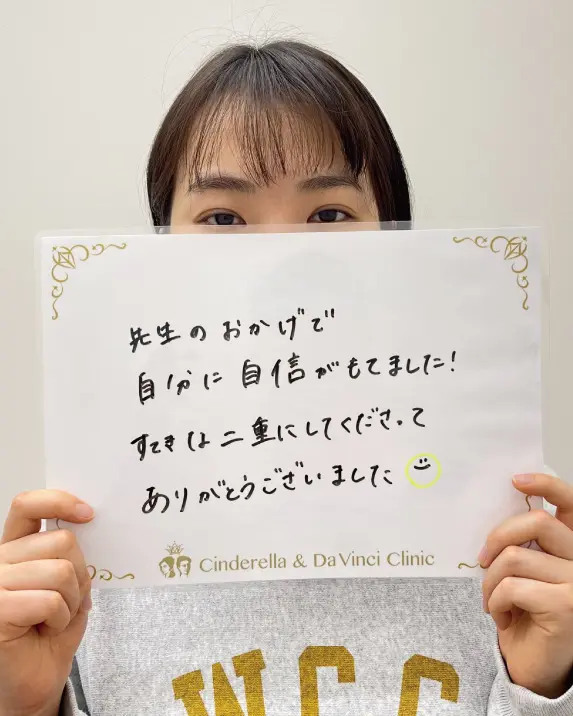 先生のおかげで
自分に自信がもてました!
すてきな二重にしてくださって
ありがとうございました
Cinderella & Da Vinci Clinic
W.C.C